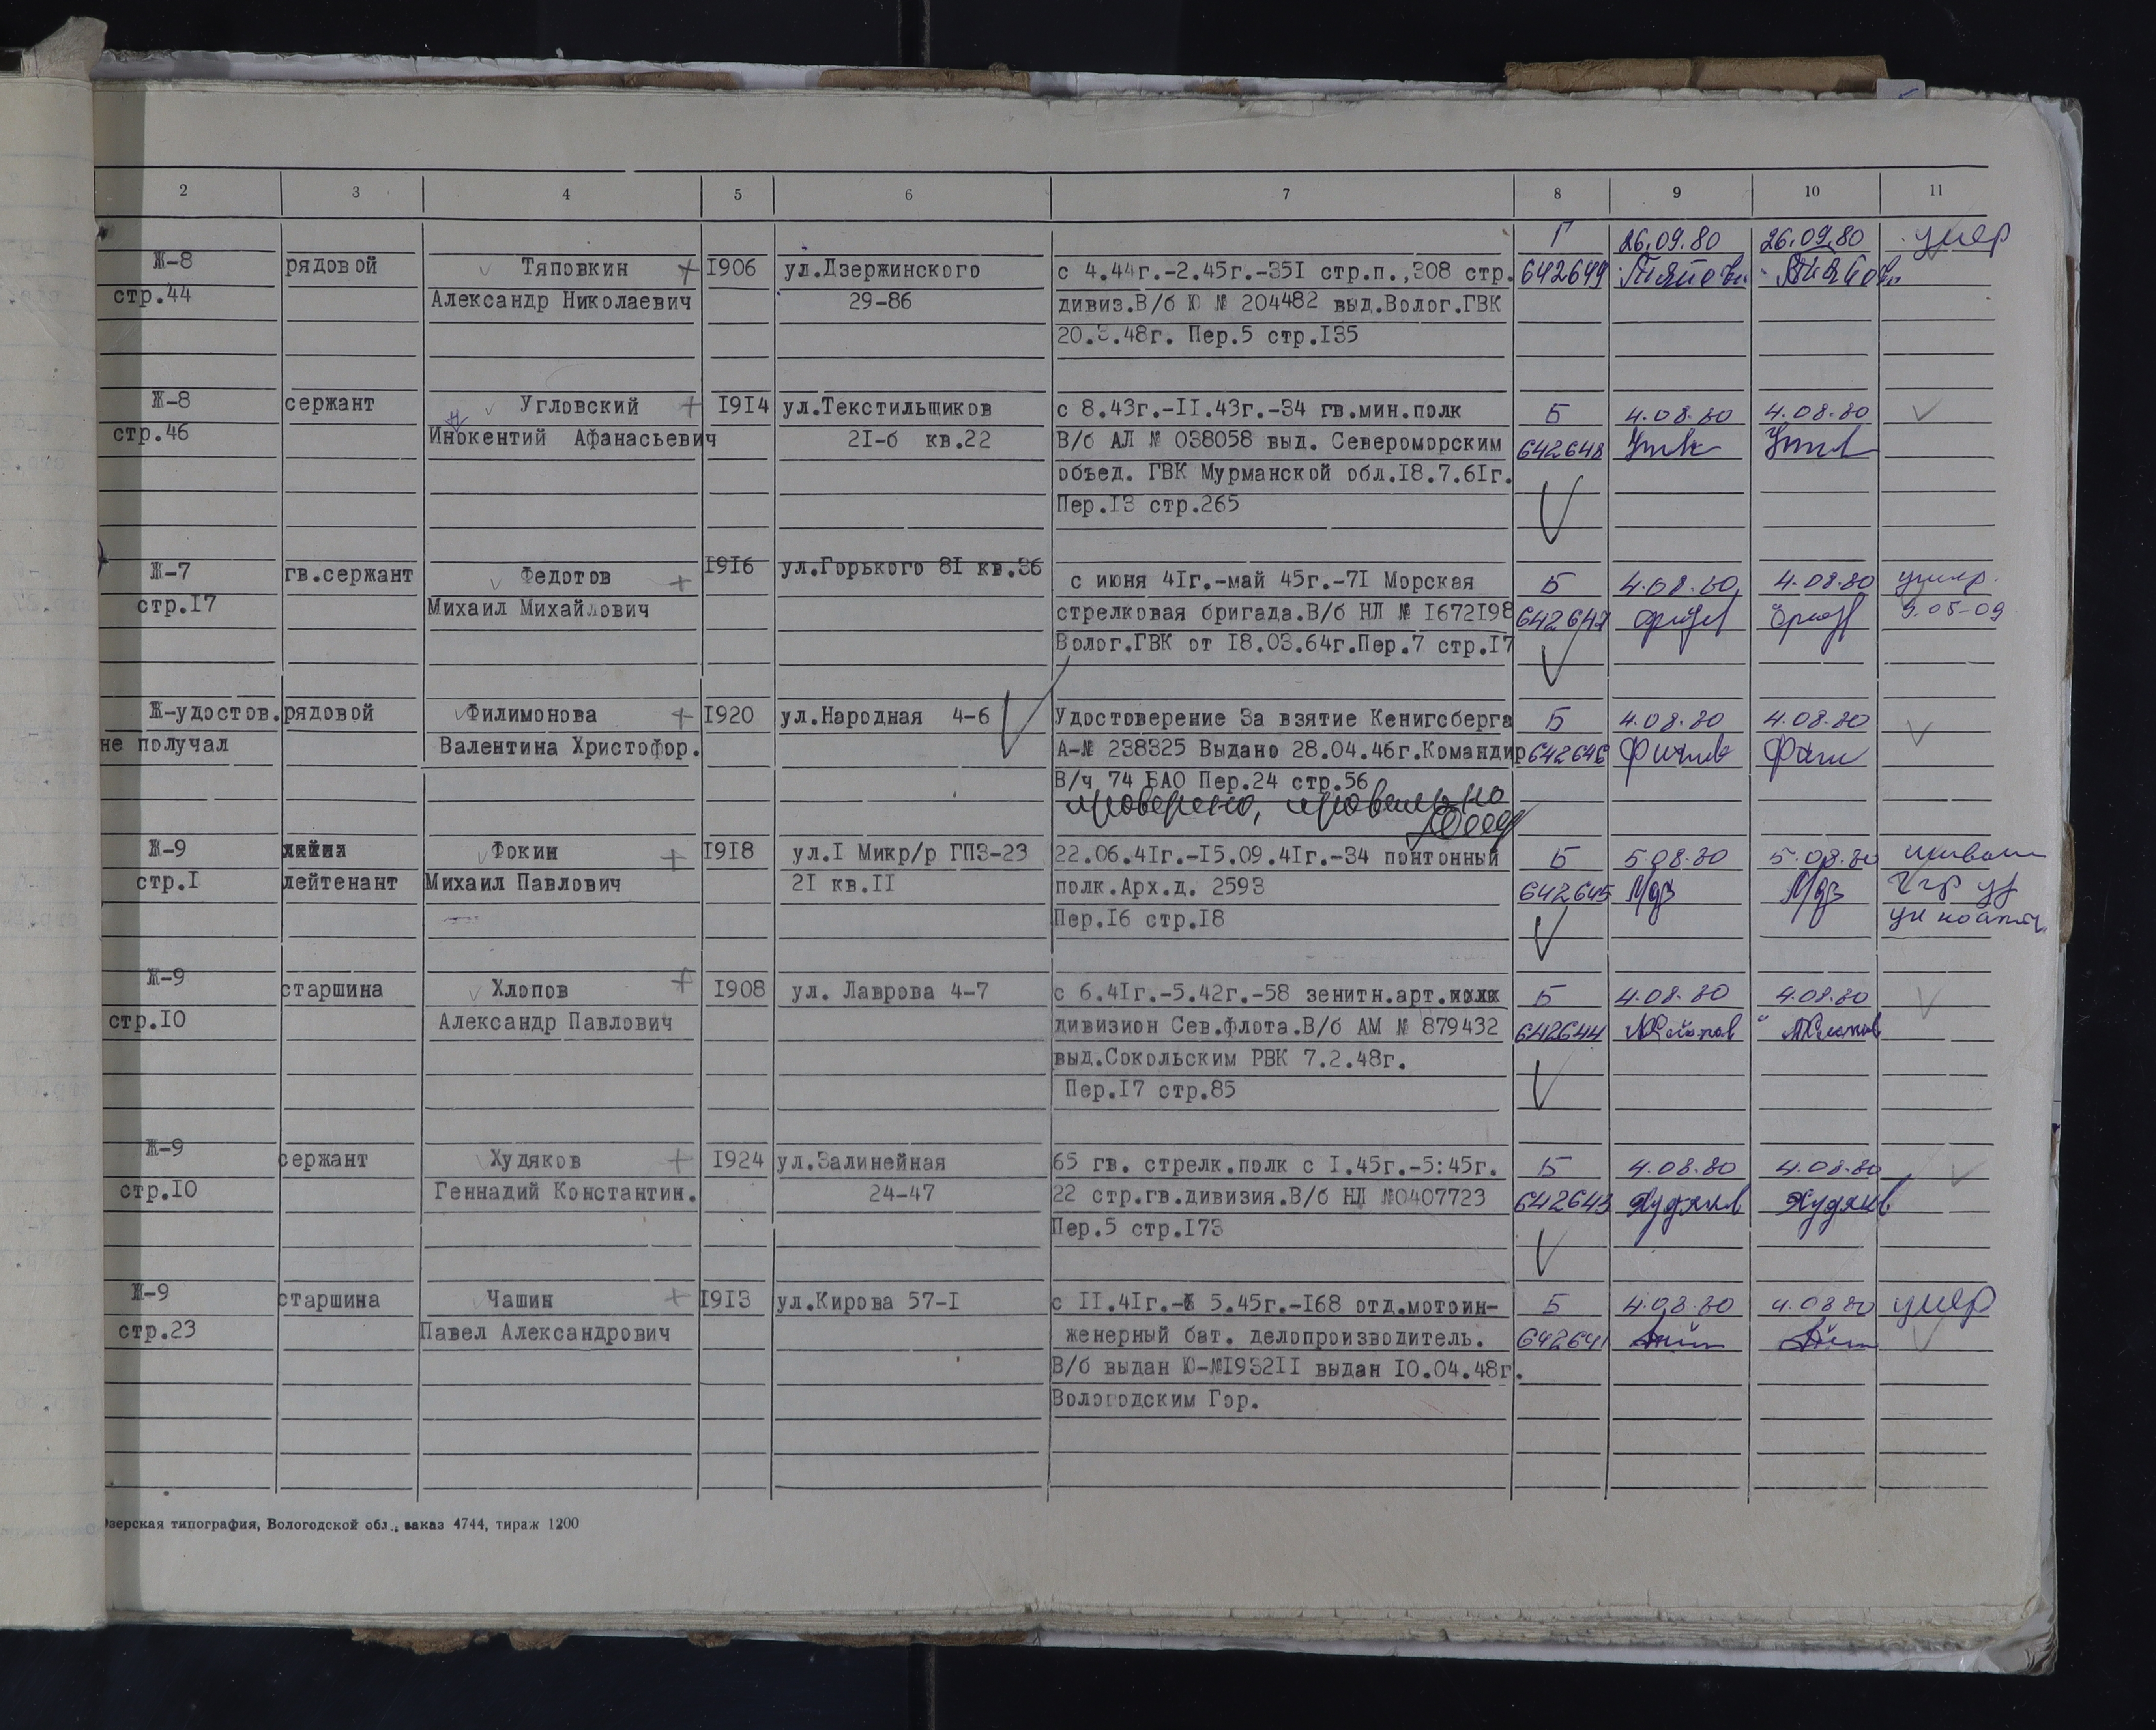 2 3 4 5 6 7 8 9 10 11
Г 26.09.80 26.09.80 умер
Ж-8 рядовой Тяповкин + 1906 ул.Дзержинского с 4.44г.-2.45г.-351 стр.п.,308 стр. 642649
стр.44 Александр Николаевич 29-86 дивиз.В/б Ю № 204482 выд.Волог.ГВК
20.3.48г. Пер.5 стр.135
Ж-8 сержант Угловский + 1914 ул.Текстильщиков с 8.43г.-11.43г.-34 гв.мин.полк Б 4.08.80 4.08.80
стр.46 Инокентий Афанасьевич 21-б кв.22 В/б АЛ № 038058 выд. Североморским 642648
объед. ГВК Мурманской обл.18.7.61г.
Пер.13 стр.265
Ж-7 гв.сержант Федотов + 1916 ул.Горького 81 кв.36 с июня 41г.-май 45г.-71 Морская Б 4.08.80 4.08.80 умер.
стр.17 Михаил Михайлович стрелковая бригада.В/б НЛ № 1672198 642647 9.05-09
Волог.ГВК от 18.03.64г.Пер.7 стр.17
Ж-удостов. рядовой Филимонова + 1920 ул.Народная 4-6 Удостоверение За взятие Кенигсберга Б 4.08.80 4.08.80
не получал Валентина Христофор. А-№ 238325 Выдано 28.04.46г.Командир 642646
В/ч 74 БАО Пер.24 стр.56
проверено, правильно
Ж-9 Фокин + 1918 ул.1 Микр/р ГПЗ-23 22.06.41г.-15.09.41г.-34 понтонный Б 5.08.80 5.08.80
стр.1 лейтенант Михаил Павлович 21 кв.11 полк.Арх.д. 2593 642645
Пер.16 стр.18
Ж-9 старшина Хлопов + 1908 ул. Лаврова 4-7 с 6.41г.-5.42г.-58 зенитн.арт.полк Б 4.08.80 4.08.80
стр.10 Александр Павлович дивизион Сев.флота.В/б АМ № 879432 642644
выд.Сокольским РВК 7.2.48г.
Пер.17 стр.85
Ж-9 сержант Худяков + 1924 ул.Залинейная 65 гв. стрелк.полк с 1.45г.-5:45г. Б 4.08.80 4.08.80
стр.10 Геннадий Константин. 24-47 22 стр.гв.дивизия.В/б НД №0407723 642643 Худяков Худяков
Пер.5 стр.173
Ж-9 старшина Чашин + 1913 ул.Кирова 57-1 с 11.41г.- 5.45г.-168 отд.мотоин- Б 4.08.80 4.08.80 умер
стр.23 Павел Александрович женерный бат. делопроизводитель. 642641
В/б выдан Ю-№193211 выдан 10.04.48г.
Вологодским Гор.
зерская типография, Вологодской обл., заказ 4744, тираж 1200